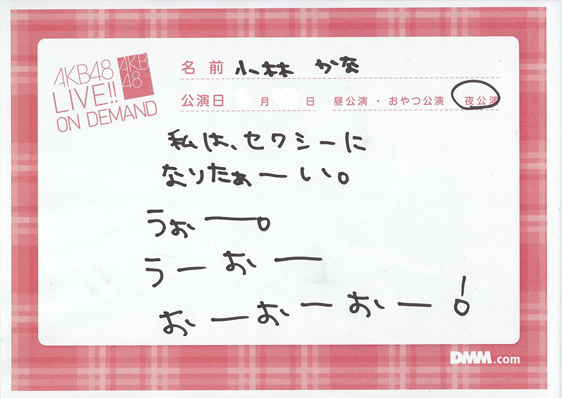 AKB48
LIVE!!
ON DEMAND
AKB
48
名前 小林 かな
公演日 月 日 昼公演・おやつ公演 夜公演
私は、セクシーに
なりたぁーい。
うぉー。
うーおー
おーおーおー!
DMM.com